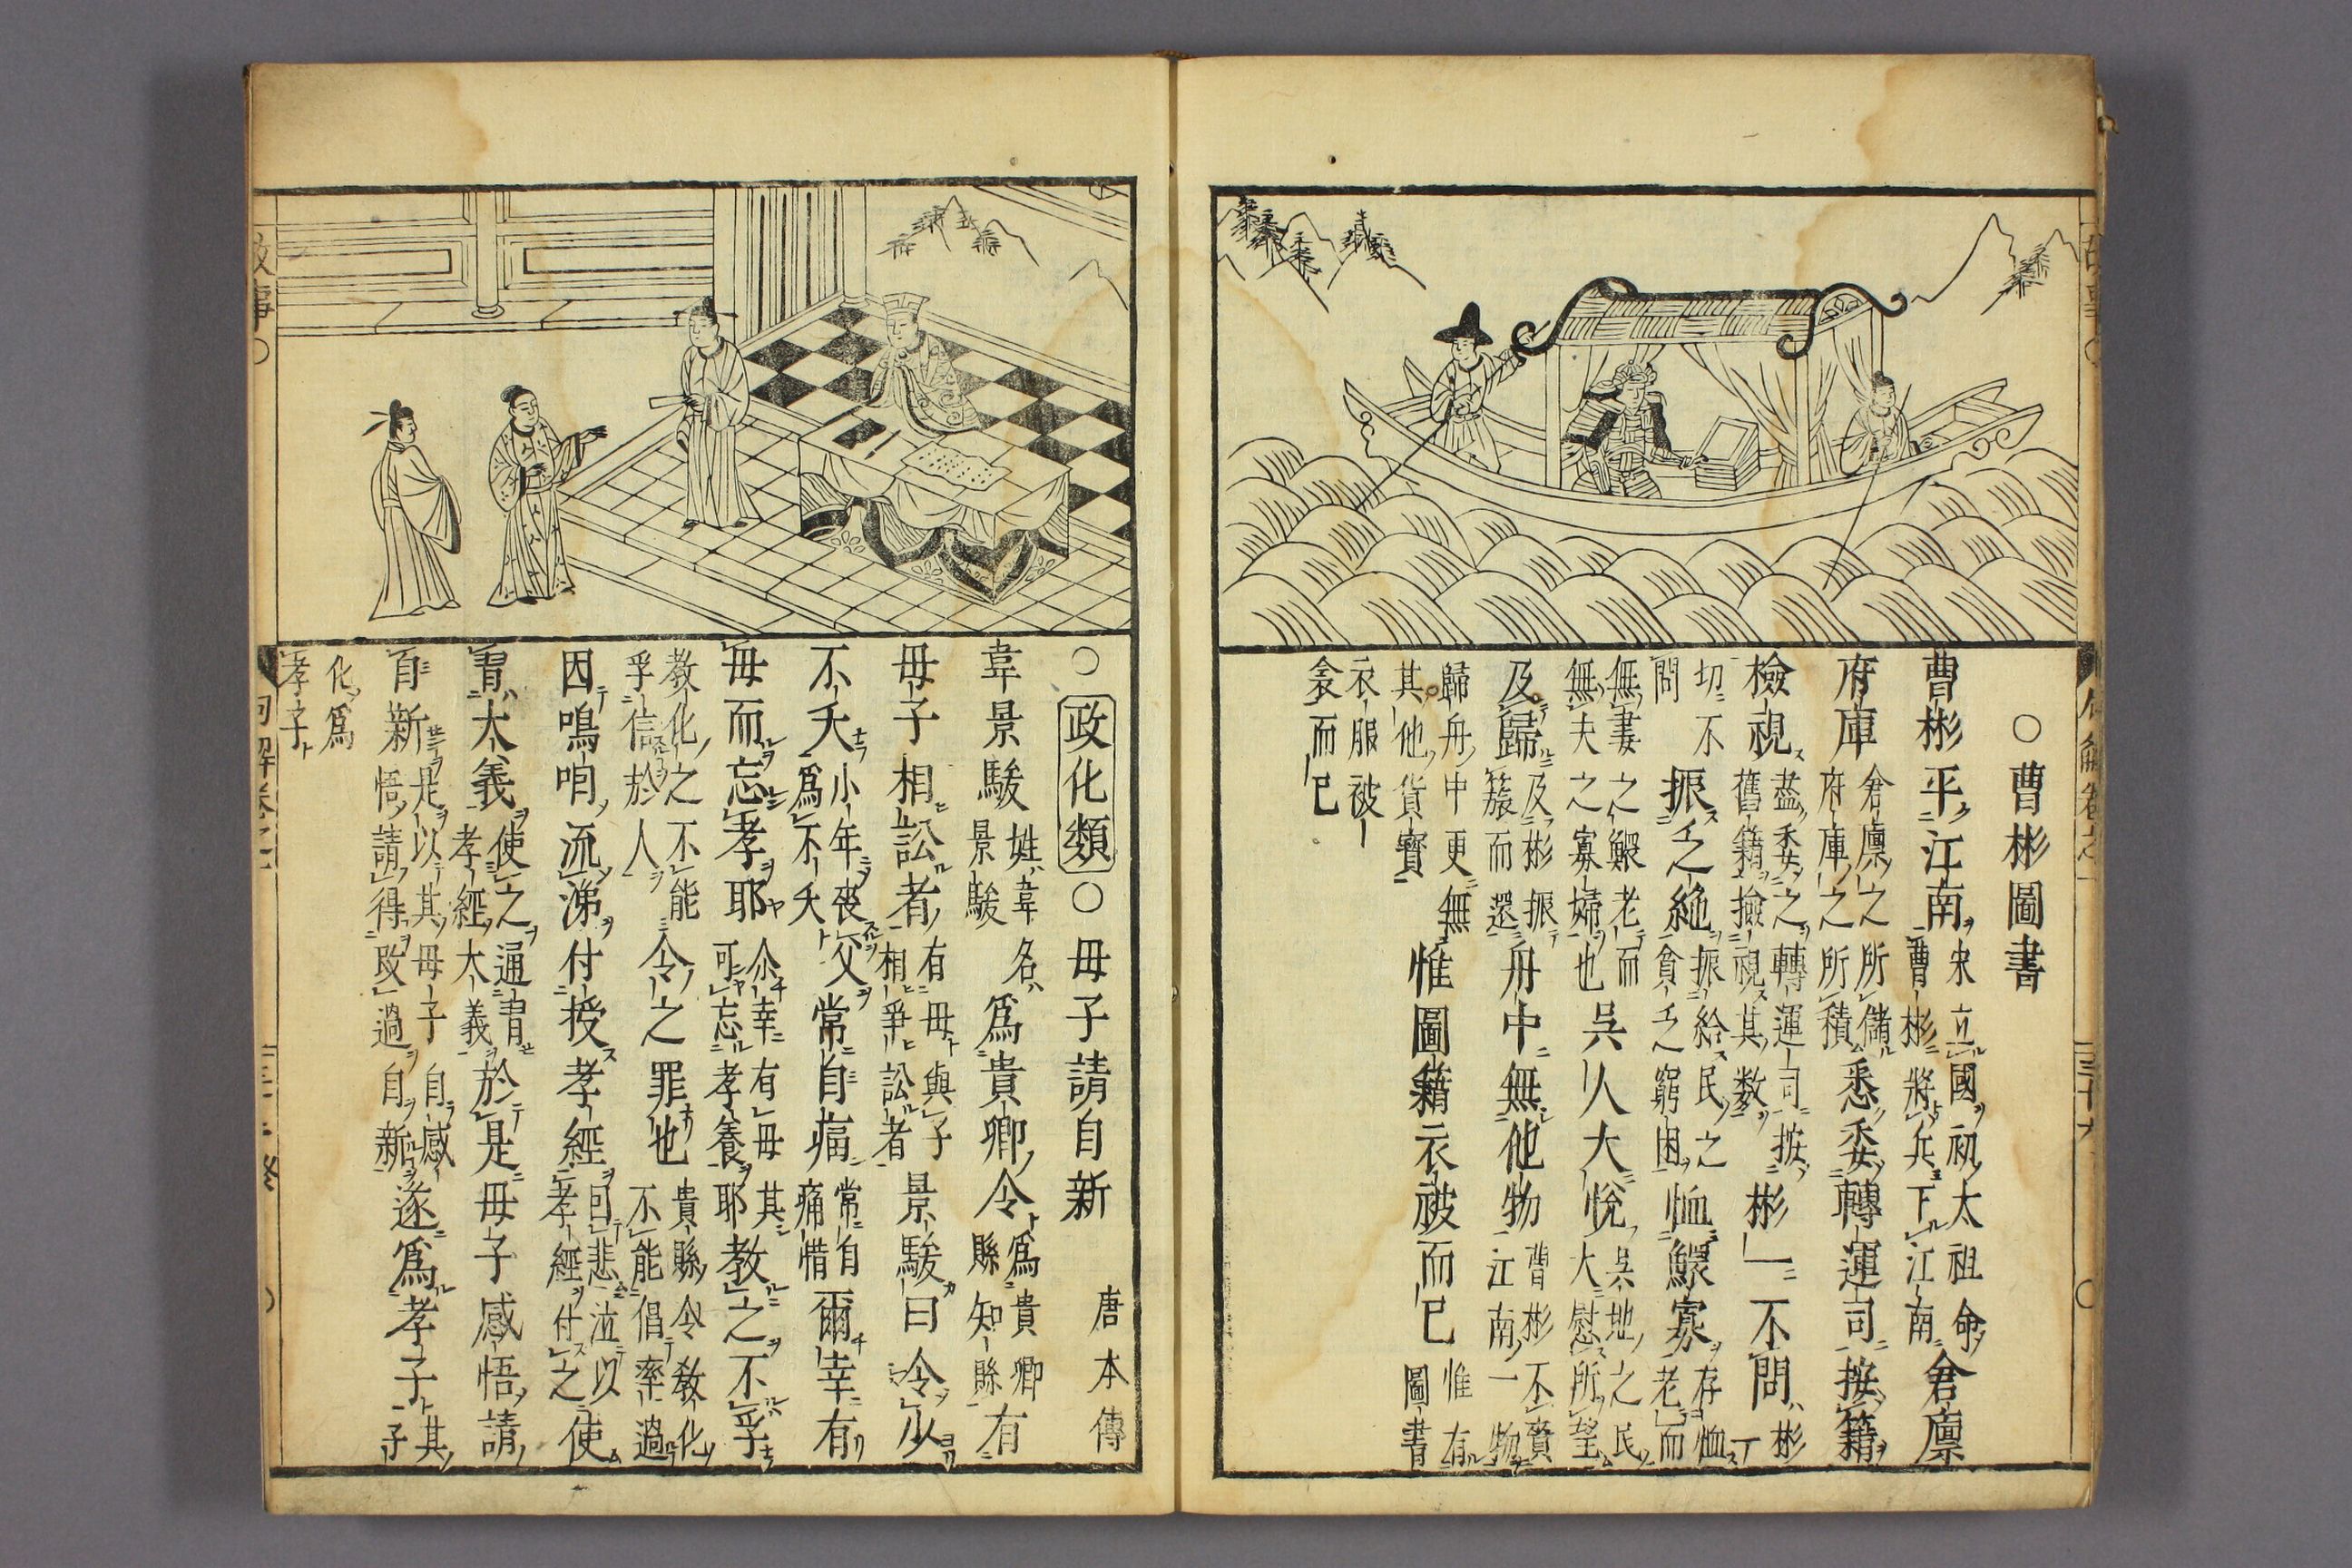 ○曹彬圖書
曹彬平江南宋立國初太祖命曹彬將兵下江南倉廩
府庫倉廩之所儲府庫之所積悉委轉運司按籍
檢視盡委之轉運司按舊籍撿視其数彬一不問彬一
切不問振乏絶振給民之貧乏窮困恤鰥寡存恤老而
無妻之鰥老而無夫之寡婦也吳人大悅吳地之民大慰所望
及歸及彬振簱而還舟中無他物曹彬不賫江南一物
歸舟中更無其他貨寳惟圖籍衣被而已惟有圖書
衣服被衾而已
○政化類○母子請自新 唐本傳
韋景駿姓韋名景駿爲貴卿令爲貴卿縣知縣有
母子相訟者有母與子相爭訟者景駿曰令少
不夭小年喪父爲不夭常自痛常自痛惜爾幸有
母而忘孝耶尒幸有母其可忘孝養耶教之不孚
教化之不能孚信於人令之罪也貴縣令教化不能倡率過
因鳴咽流涕付授孝經囙悲泣以孝經付之使
習大義使之通習孝經大義於是母子感悟請
自新是以其母子自感悟請得改過自新遂爲孝子其子
化爲孝子
故事○
句解卷之